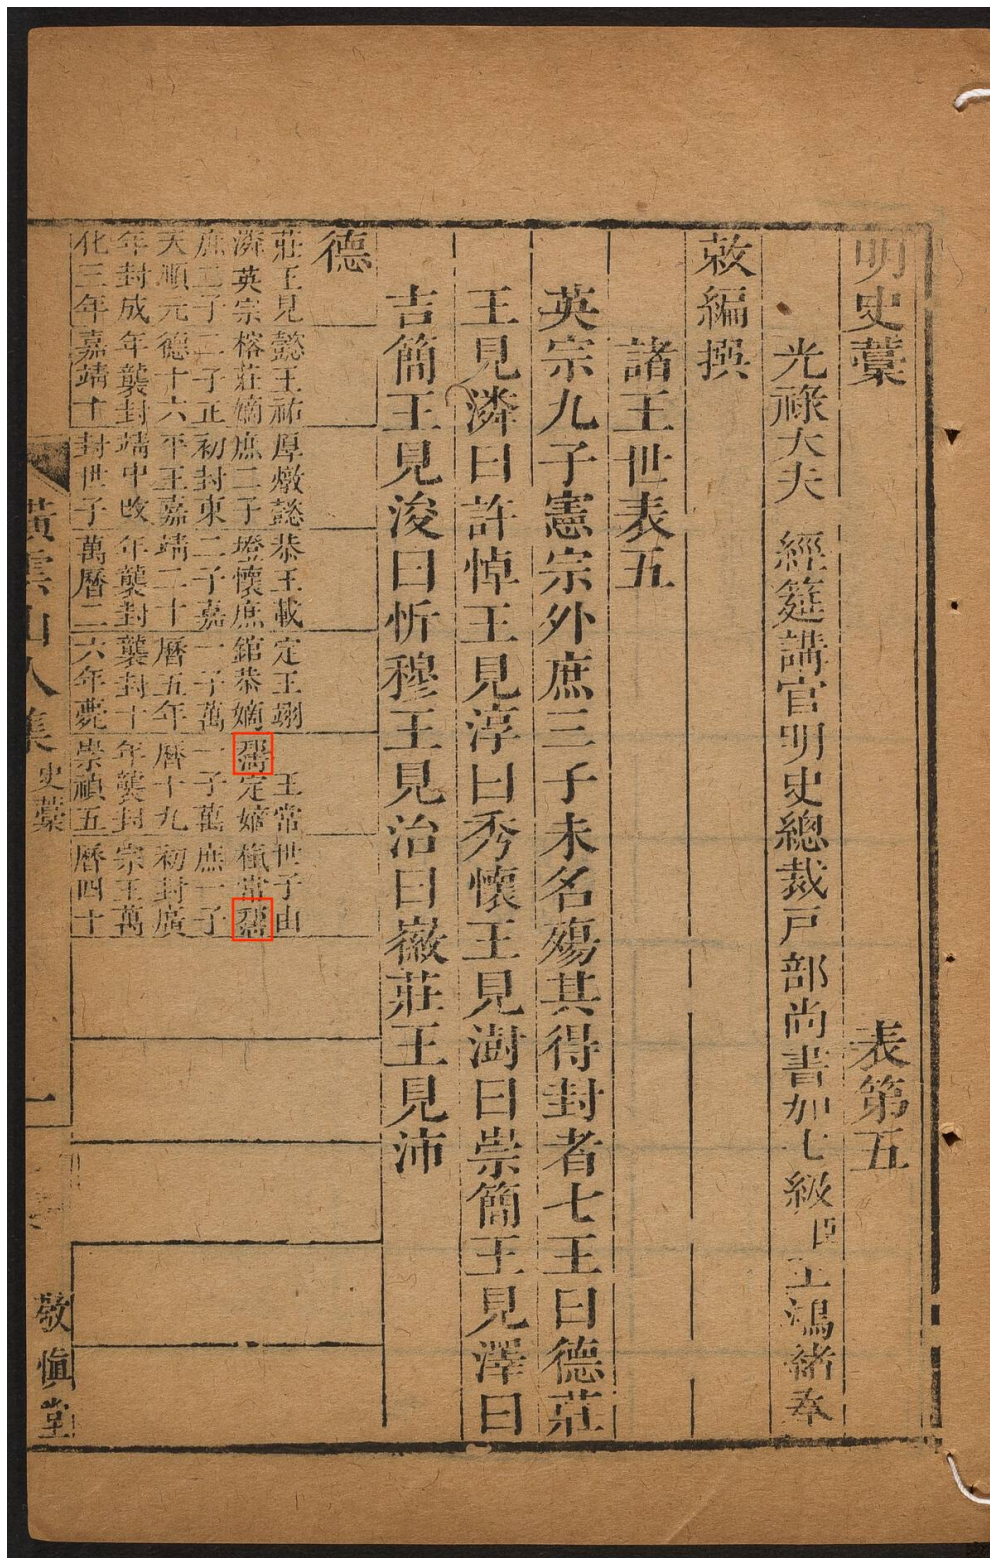 明史藁 表第五
光祿大夫 經筵講官明史總裁戶部尚書加七級臣王鴻緒奉
敕編撰
諸王世表五
英宗九子憲宗外庶三子未名殤其得封者七王曰德莊
王見潾曰許悼王見淳曰秀懷王見澍曰崇簡王見澤曰
吉簡王見浚曰忻穆王見治曰徽莊王見沛
德
莊王見
潾英宗
庶二子
天順元
年封成
化三年
懿王祐
榕莊嫡
二子正
德十六
年襲封
嘉靖十
厚燉懿
庶二子
初封東
平王嘉
靖中改
封世子
恭王載
墱懷庶
二子嘉
靖二十
年襲封
萬曆二
定王翊
錧恭嫡
一子萬
曆五年
襲封十
六年薨
王常
定嫡
一子萬
曆十九
年襲封
崇禎五
世子由
樞常
庶一子
初封廣
宗王萬
曆四十
橫雲山人集 史藁 一 敬愼堂